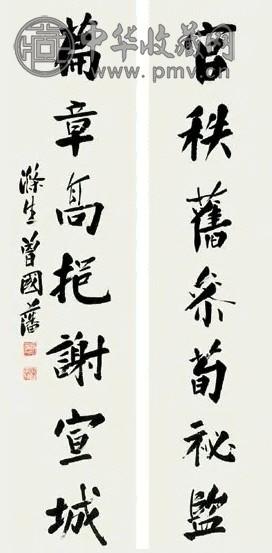 官秩舊參荀祕監
篇章高挹謝宣城
滌生曾國藩
中华收藏网
www.pmv.cn